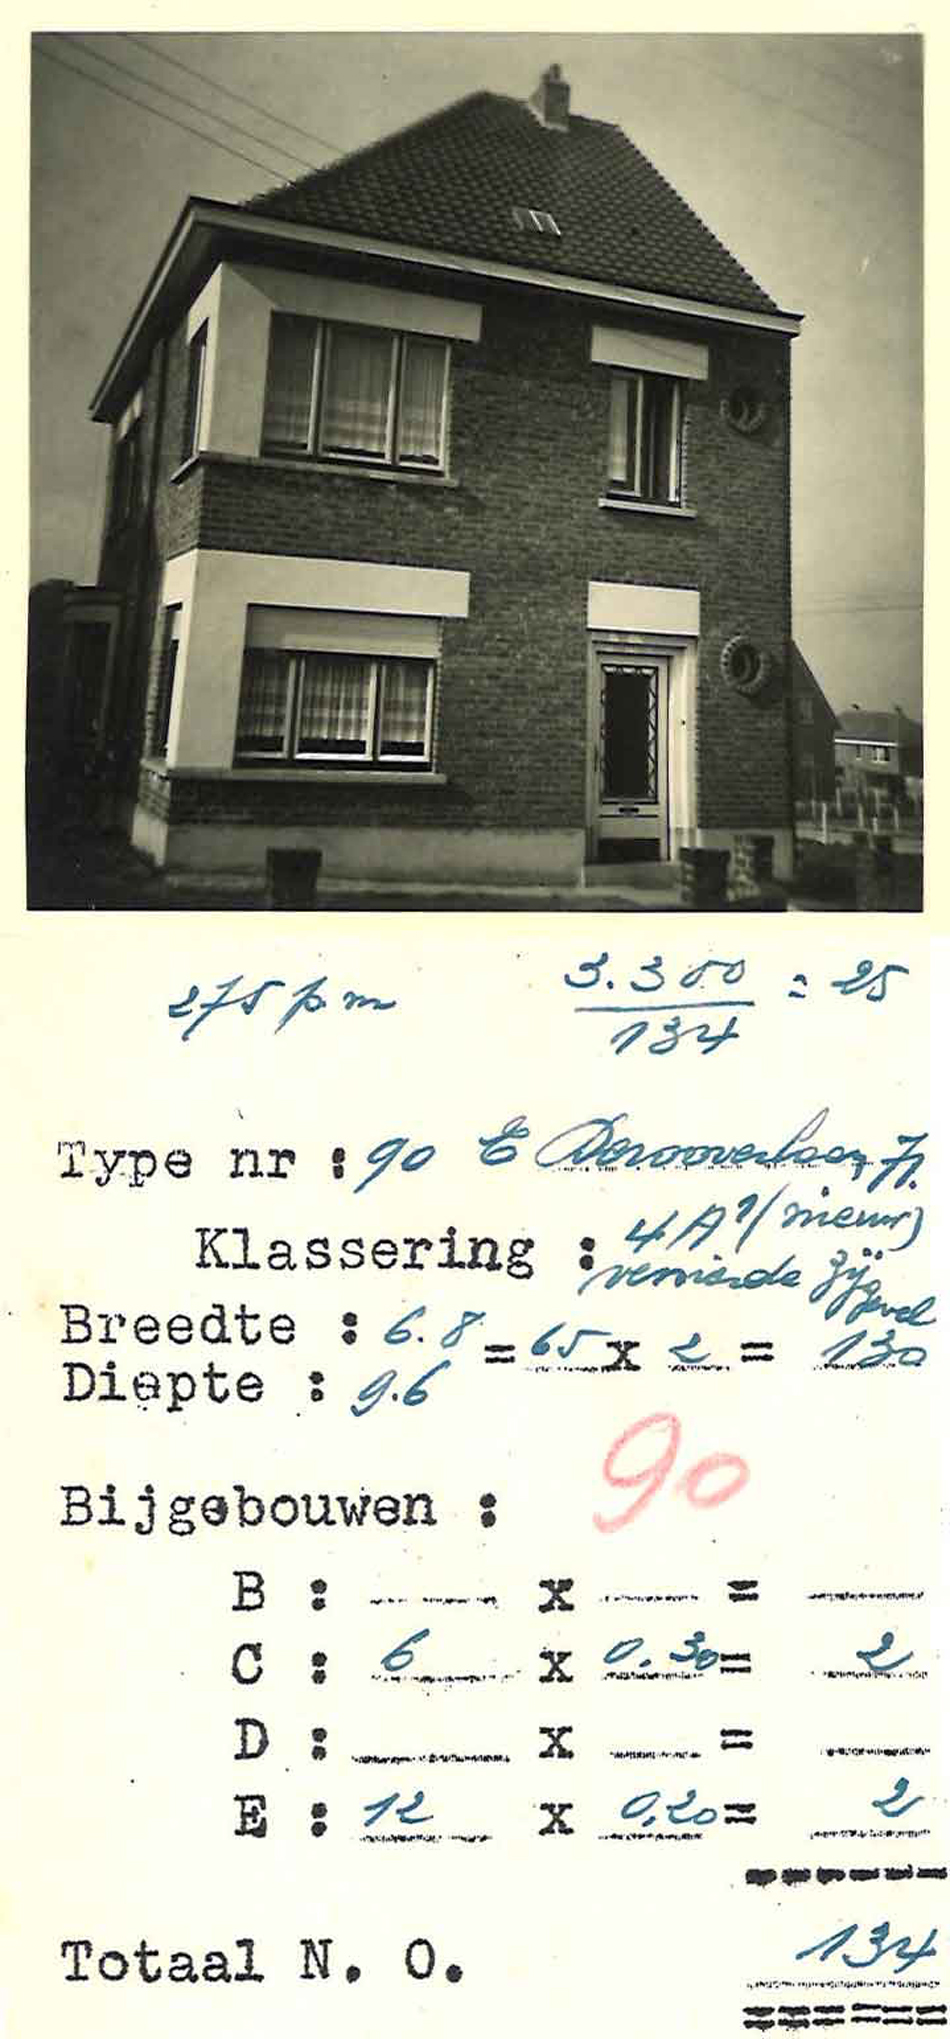 275 p m
3.350 = 25
134
Type nr : 90 E Derooverlaan, 71.
Klassering : 4A (nieuw)
versierde zijgevel
Breedte : 6.8 = 65 x 2 = 130
Diepte : 9.6
90
Bijgebouwen :
B : x =
C : 6 x 0.30 = 2
D : x =
E : 12 x 0,20 = 2
Totaal N. O. 134